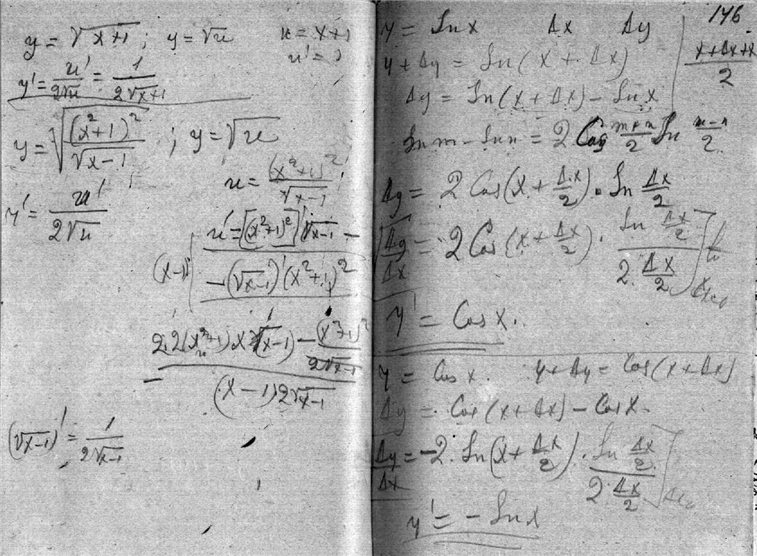 y = √x+1 ; y = √u   u = x+1
u' = 1
y' = u'/2√u = 1/2√x+1
y = √((x²+1)²/√x-1) ; y = √u
u = (x²+1)²/√x-1
y' = u'/2√u
u' = [(x²+1)²]'√x-1 -
-(√x-1)'(x²+1)²
(x-1)
2.2(x²+1)x √x-1) - (x²+1)²/2√x-1
(x-1)2√x-1
(√x-1)' = 1/2√x-1
146
y = Sin x   Δx   Δy
x+Δx+x/2
y+Δy = Sin(x+Δx)
Δy = Sin(x+Δx) - Sin x
Sin m - Sin n = 2 Cos m+n/2 Sin m-n/2
Δy = 2 Cos(x+Δx/2) · Sin Δx/2
Δy/Δx = 2 Cos(x+Δx/2) · Sin Δx/2 / 2·Δx/2
y' = Cos x.
y = Cos x.   y+Δy = Cos(x+Δx)
Δy = Cos(x+Δx) - Cos x.
Δy/Δx = -2. Sin(x+Δx/2) · Sin Δx/2 / 2·Δx/2
y' = - Sin x